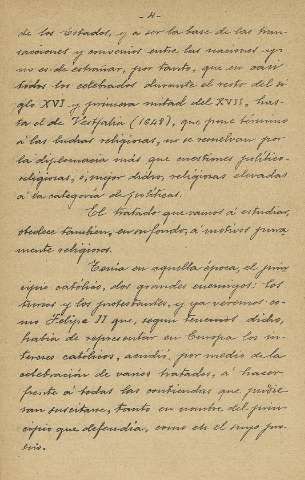 - 4 -
de los Estados, y a ser la base de las tran-
sacciones y convenios entre las naciones y
no es de extrañar, por tanto, que en casi
todos los celebrados durante el resto del si
glo XVI y primera mitad del XVII, has-
ta el de Vestfalia (1648), que pone término
á las luchas religiosas, no se resuelvan por
la diplomacia más que cuestiones político-
religiosas, ó, mejor dicho, religiosas elevadas
á la categoría de políticas.
El tratado que vamos á estudiar,
obedece tambien, en su fondo, á motivos pura
mente religiosos.
Tenía en aquella época, el prin
cipio católico, dos grandes enemigos: los
turcos y los protestantes, y ya veremos co-
mo Felipe II que, segun tenemos dicho,
había de representar en Europa los in-
tereses católicos, acudió, por medio de la
celebración de varios tratados, á hacer
frente á todas las contiendas que pudie-
ran suscitarse, tanto en nombre del prin-
cipio que defendía, como en el suyo pro-
pio.